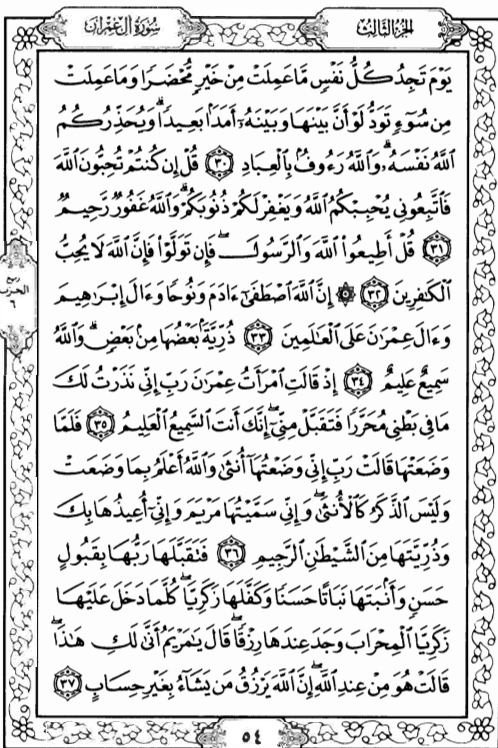 سُورَةُ آلِ عِمْرَانَ
الجُزْءُ الثَّالِثُ
يَوْمَ تَجِدُ كُلُّ نَفْسٍ مَّا عَمِلَتْ مِنْ خَيْرٍ مُّحْضَرًا وَمَا عَمِلَتْ
مِن سُوٓءٍ تَوَدُّ لَوْ أَنَّ بَيْنَهَا وَبَيْنَهُۥٓ أَمَدَۢا بَعِيدًا ۗ وَيُحَذِّرُكُمُ
ٱللَّهُ نَفْسَهُۥ ۗ وَٱللَّهُ رَءُوفُۢ بِٱلْعِبَادِ ٣٠ قُلْ إِن كُنتُمْ تُحِبُّونَ ٱللَّهَ
فَٱتَّبِعُونِي يُحْبِبْكُمُ ٱللَّهُ وَيَغْفِرْ لَكُمْ ذُنُوبَكُمْ ۗ وَٱللَّهُ غَفُورٌ رَّحِيمٌ
٣١ قُلْ أَطِيعُوا۟ ٱللَّهَ وَٱلرَّسُولَ ۖ فَإِن تَوَلَّوْا۟ فَإِنَّ ٱللَّهَ لَا يُحِبُّ
ٱلْكَـٰفِرِينَ ٣٢ ۞ إِنَّ ٱللَّهَ ٱصْطَفَىٰٓ ءَادَمَ وَنُوحًا وَءَالَ إِبْرَٰهِيمَ
وَءَالَ عِمْرَٰنَ عَلَى ٱلْعَـٰلَمِينَ ٣٣ ذُرِّيَّةَۢ بَعْضُهَا مِنۢ بَعْضٍ ۗ وَٱللَّهُ
سَمِيعٌ عَلِيمٌ ٣٤ إِذْ قَالَتِ ٱمْرَأَتُ عِمْرَٰنَ رَبِّ إِنِّي نَذَرْتُ لَكَ
مَا فِي بَطْنِي مُحَرَّرًا فَتَقَبَّلْ مِنِّيٓ ۖ إِنَّكَ أَنتَ ٱلسَّمِيعُ ٱلْعَلِيمُ ٣٥ فَلَمَّا
وَضَعَتْهَا قَالَتْ رَبِّ إِنِّي وَضَعْتُهَآ أُنثَىٰ وَٱللَّهُ أَعْلَمُ بِمَا وَضَعَتْ
وَلَيْسَ ٱلذَّكَرُ كَٱلْأُنثَىٰ ۖ وَإِنِّي سَمَّيْتُهَا مَرْيَمَ وَإِنِّيٓ أُعِيذُهَا بِكَ
وَذُرِّيَّتَهَا مِنَ ٱلشَّيْطَـٰنِ ٱلرَّجِيمِ ٣٦ فَتَقَبَّلَهَا رَبُّهَا بِقَبُولٍ
حَسَنٍ وَأَنۢبَتَهَا نَبَاتًا حَسَنًا وَكَفَّلَهَا زَكَرِيَّا ۖ كُلَّمَا دَخَلَ عَلَيْهَا
زَكَرِيَّا ٱلْمِحْرَابَ وَجَدَ عِندَهَا رِزْقًا ۖ قَالَ يَـٰمَرْيَمُ أَنَّىٰ لَكِ هَـٰذَا ۖ
قَالَتْ هُوَ مِنْ عِندِ ٱللَّهِ ۖ إِنَّ ٱللَّهَ يَرْزُقُ مَن يَشَآءُ بِغَيْرِ حِسَابٍ ٣٧
٥٤